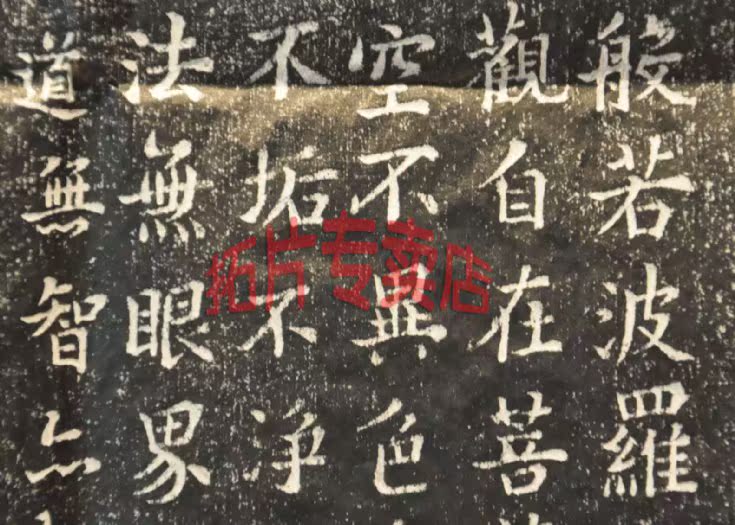 般若波羅
觀自在菩
空不異色
不垢不净
法無眼界
道無智亦
拓片专卖店